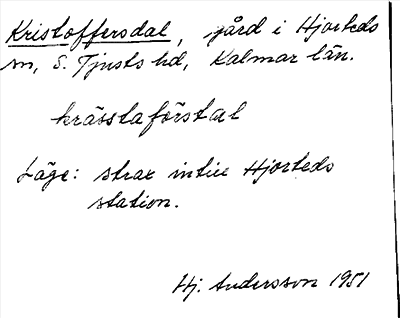 Kristoffersdal, gård i Hjorteds
sn, S. Tjusts hd, Kalmar län.
kråsstaförstal
Läge: strax intill Hjorteds
station.
Hj. Andersson 1951